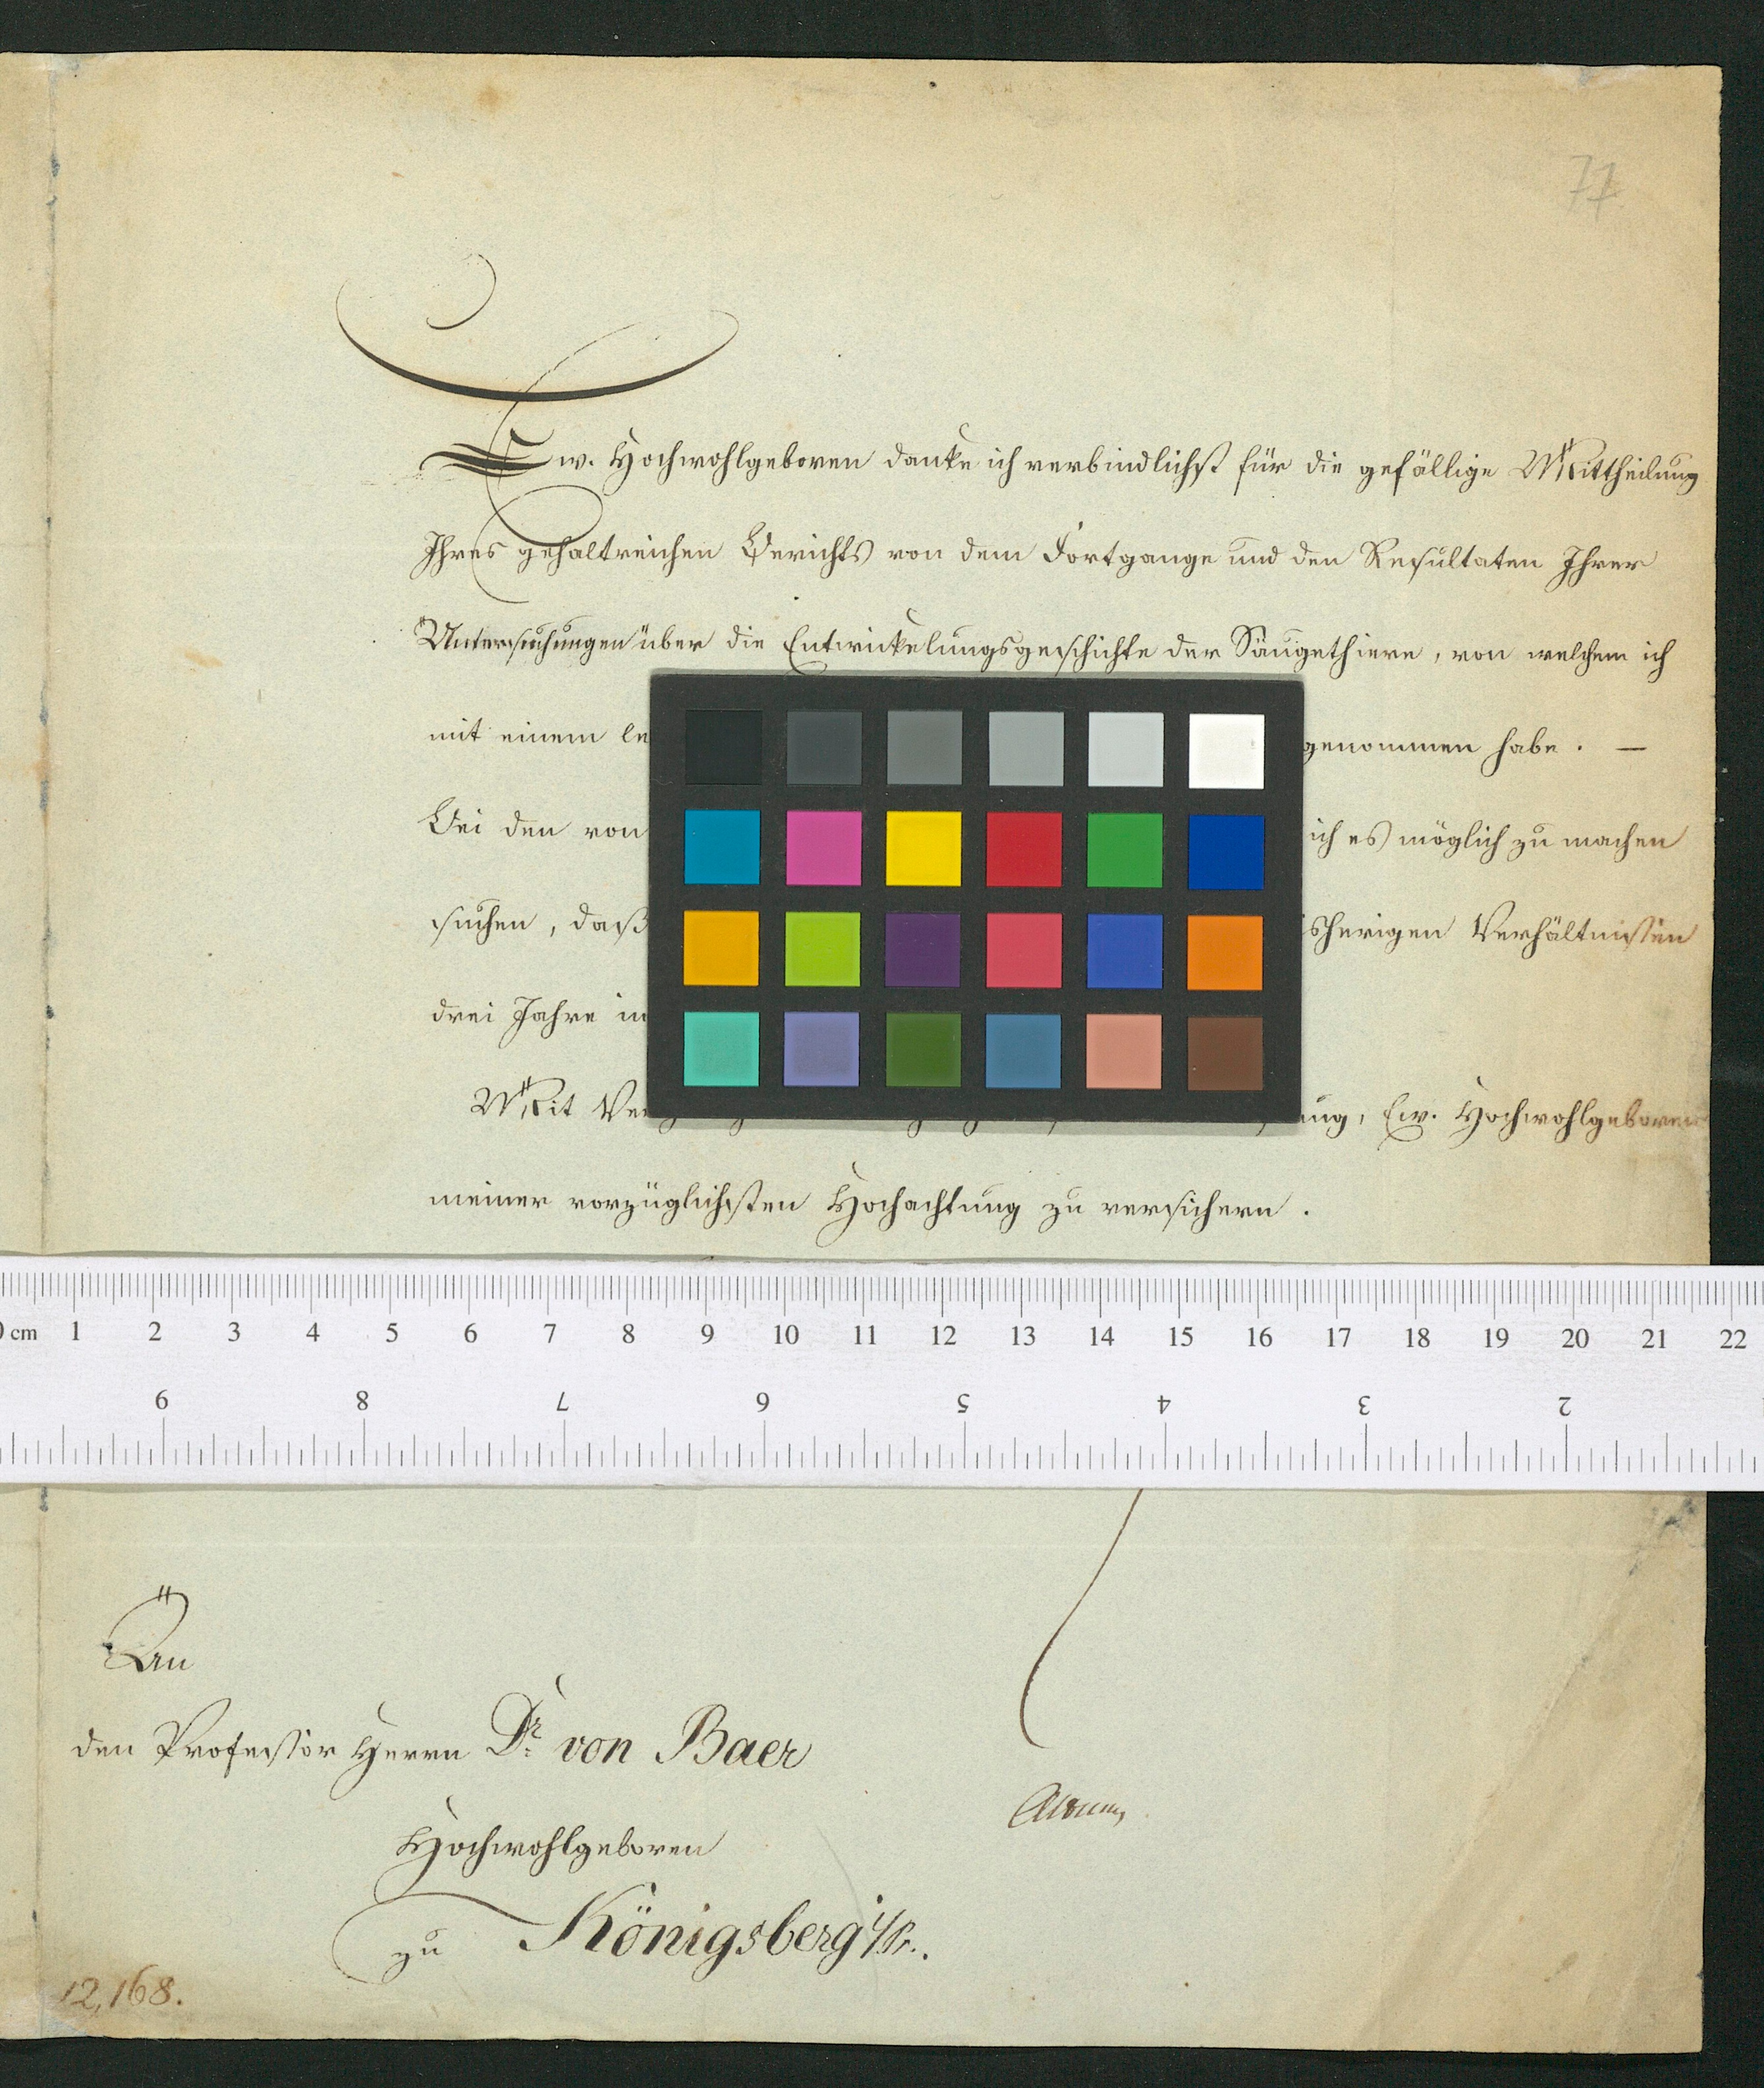 77
Ew. Hochwohlgeboren danke ich verbindlichst für die gefällige Mittheilung
Ihres gehaltreichen Berichts von dem Fortgange und den Resultaten Ihrer
Untersuchungen über die Entwickelungsgeschichte der Säugethiere, von welchem ich
mit einem le genommen habe. —
Bei den von ich es möglich zu machen
suchen, daß isherigen Verhältnissen
drei Jahre in
Mit Ver ung, Ew. Hochwohlgeboren
meiner vorzüglichsten Hochachtung zu versichern.
0 cm 1 2 3 4 5 6 7 8 9 10 11 12 13 14 15 16 17 18 19 20 21 22
9 8 7 6 5 4 3 2
An
den Professor Herrn Dr. von Baer
Hochwohlgeboren
zu Königsberg i/Pr.
12,168.